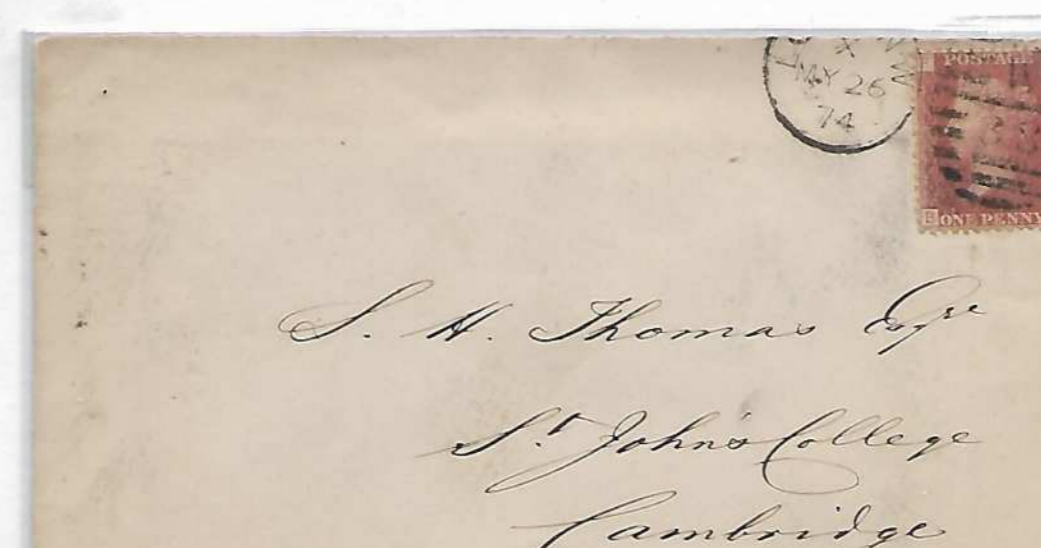 X
MY 26
74
POSTAGE
ONE PENNY
S. H. Thomas Esqre
St. John's College
Cambridge